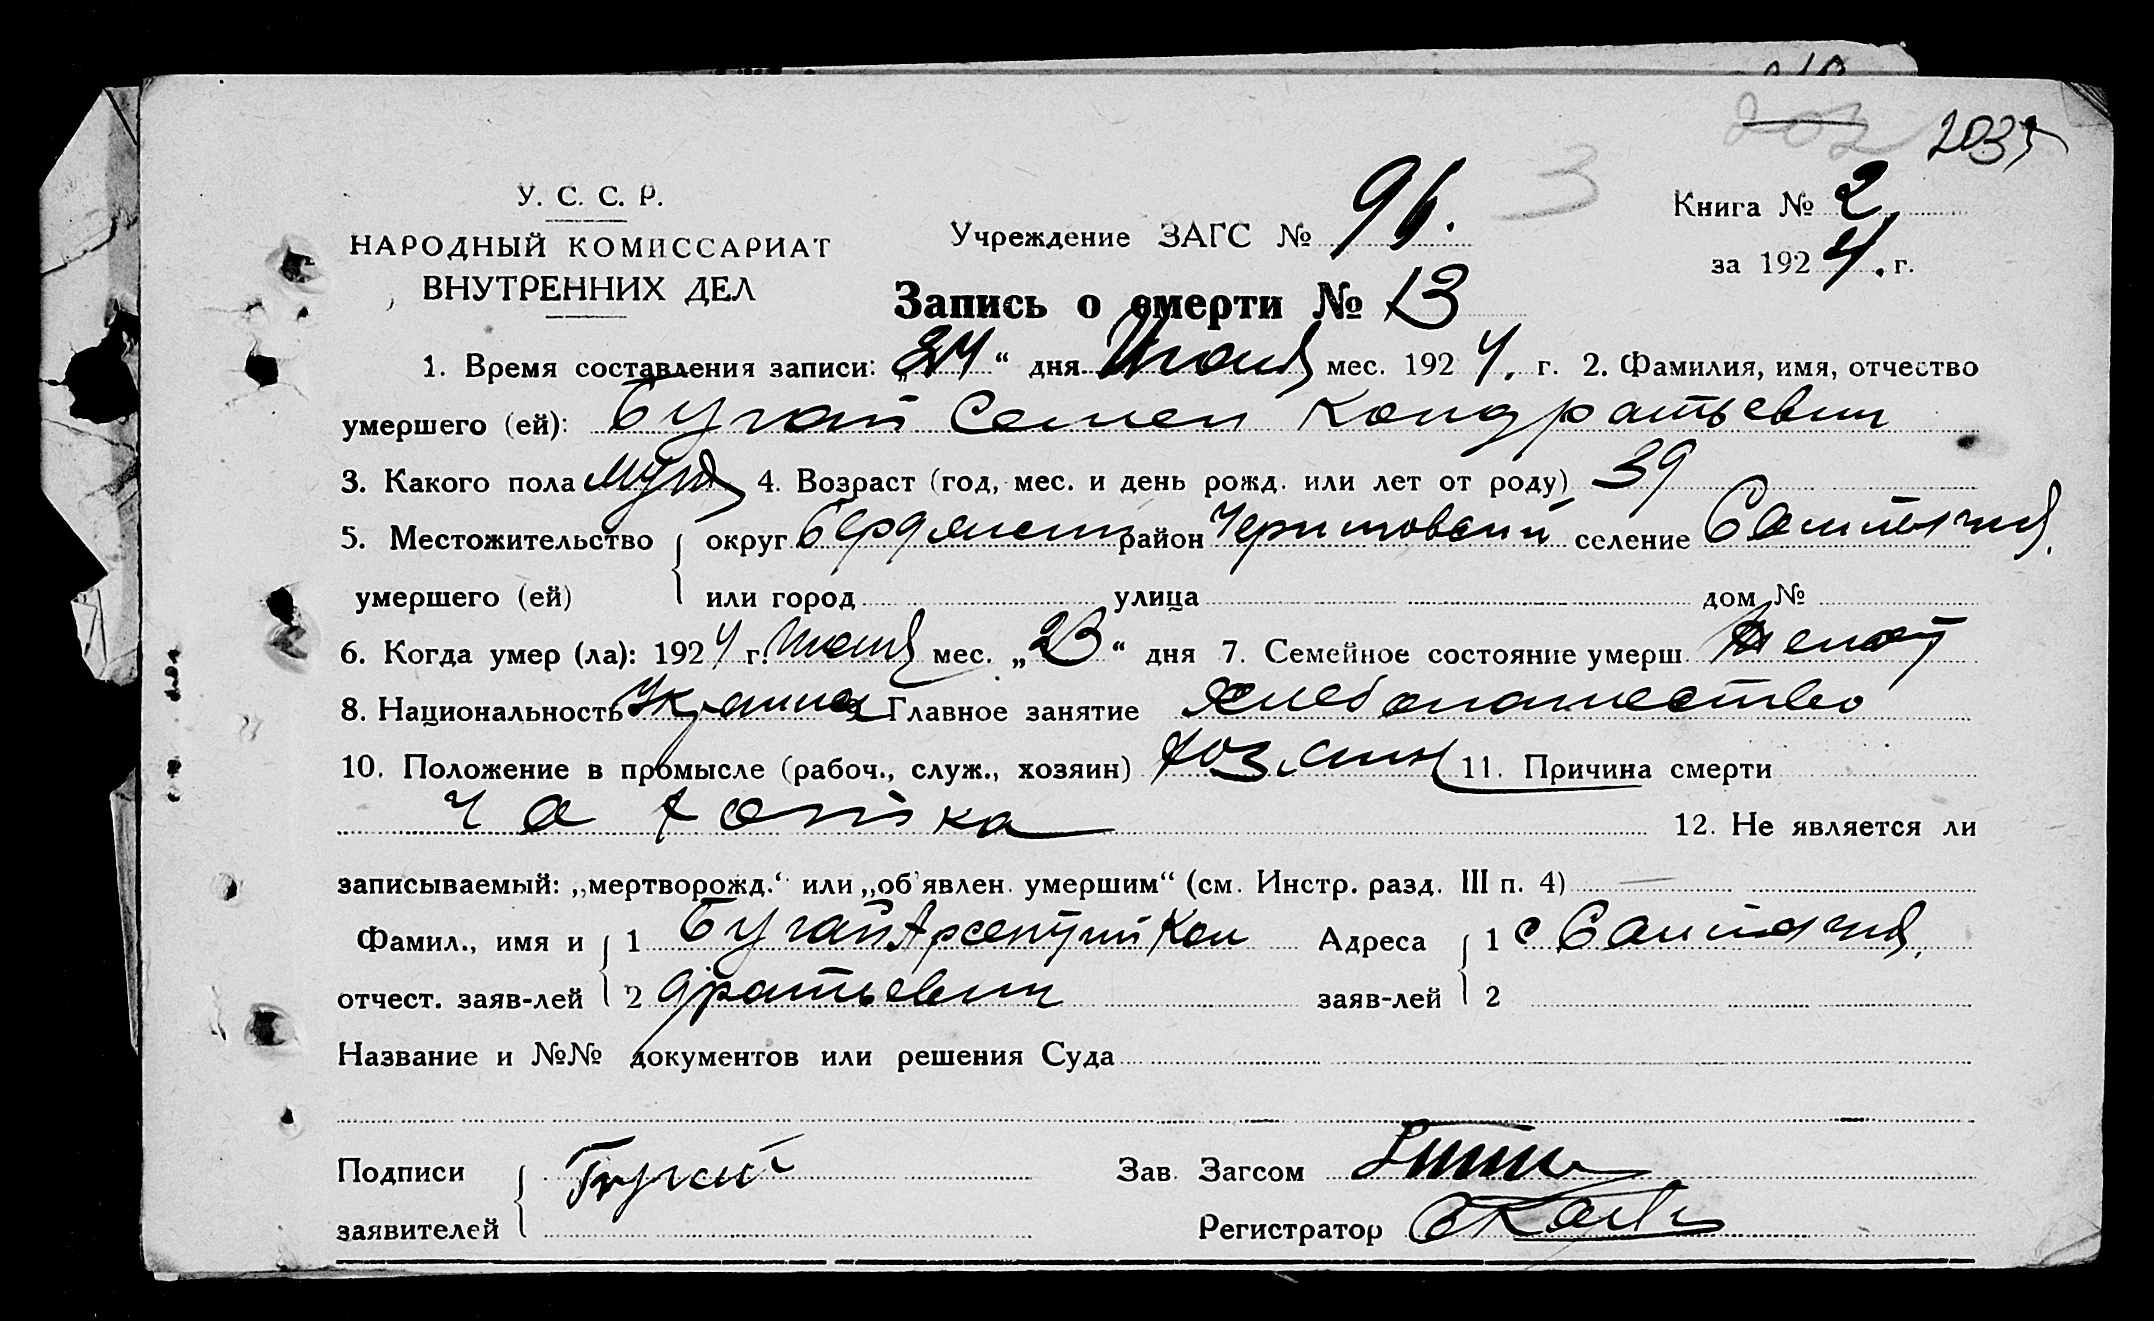 203
У. С. С. Р.
НАРОДНЫЙ КОМИССАРИАТ
ВНУТРЕННИХ ДЕЛ
Учреждение ЗАГС № 96.
3
Книга № 2
за 1924. г.
Запись о смерти № 13
1. Время составления записи: „24“ дня Июня мес. 1924. г. 2. Фамилия, имя, отчество
умершего (ей): Бугай Семен Кондратьевич
3. Какого пола муж 4. Возраст (год, мес. и день рожд. или лет от роду) 39
5. Местожительство { округ Бердянский район Черниговский селение Салтычия.
умершего (ей) или город улица дом №
6. Когда умер (ла): 1924 г. Июня мес. „23“ дня 7. Семейное состояние умерш. женат
8. Национальность Украинец Главное занятие хлебопашество
10. Положение в промысле (рабоч., служ., хозяин) хозяин 11. Причина смерти
чахотка 12. Не является ли
записываемый: „мертворожд.“ или „об'явлен. умершим“ (см. Инстр. разд. III п. 4) —
Фамил., имя и { 1 Бугай Арсентий Кон Адреса { 1 с Салтычия.
отчест. заяв-лей 2 дратьевич заяв-лей 2
Название и №№ документов или решения Суда
Подписи { Бугай Зав. Загсом
заявителей Регистратор